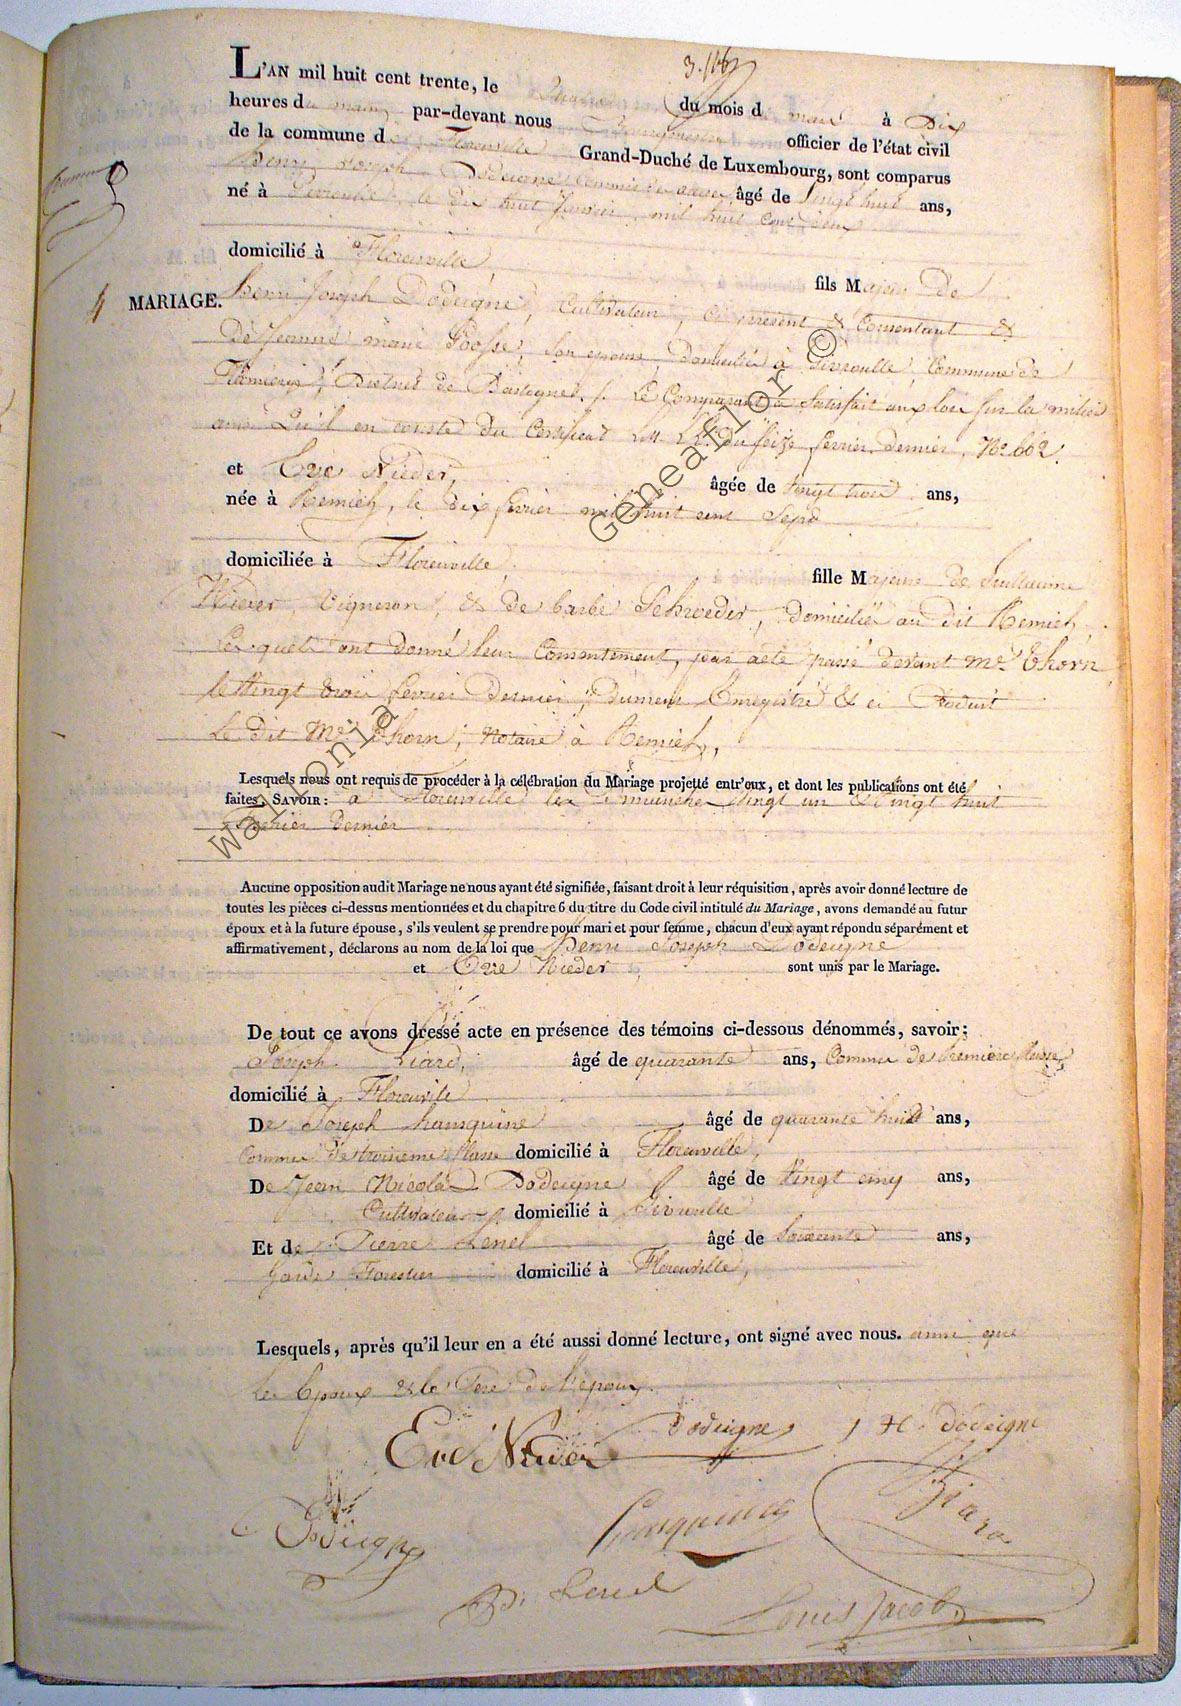 L'AN mil huit cent trente, le du mois d mars à Dix
heures du matin par-devant nous Bourgmestre officier de l'état civil
de la commune de Florenville Grand-Duché de Luxembourg, sont comparus
Henry Joseph Dodeigne âgé de vingt huit ans,
né à le dix huit Janvier mil huit cent deux
domicilié à Florenville
fils Majeur de
4 MARIAGE.
Henri Joseph Dodeigne, Cultivateur, ci présent & Consentant &
De Jeanne marie son epouse, Domiciliés à Givroulle, Commune de
District de Bastogne. Le Comparant a satisfait aux loix sur la milice
ainsi Qu'il en conste du Certificat du seize fevrier dernier, No 662.
et Eve Nieder, âgée de vingt trois ans,
née à Remich, le dix fevrier mil huit cent Sept
domiciliée à Florenville fille Majeure de Guillaume
Nieder, Vigneron, & de barbe Schroeder, domiciliés au dit Remich,
Lesquels ont donné leur Consentement, par acte passé devant Mr. Thorn
le Vingt trois fevrier dernier, Dument Enregistré & ci Produit
Le dit Mr. Thorn, Notaire à Remich,
Lesquels nous ont requis de procéder à la célébration du Mariage projetté entr'eux, et dont les publications ont été
faites, SAVOIR: à Florenville les Dimanches Vingt un & Vingt huit
fevrier dernier
Aucune opposition audit Mariage ne nous ayant été signifiée, faisant droit à leur réquisition, après avoir donné lecture de
toutes les pièces ci-dessus mentionnées et du chapitre 6 du titre du Code civil intitulé du Mariage, avons demandé au futur
époux et à la future épouse, s'ils veulent se prendre pour mari et pour femme, chacun d'eux ayant répondu séparément et
affirmativement, déclarons au nom de la loi que Henri Joseph Dodeigne
et Eve Nieder sont unis par le Mariage.
De tout ce avons dressé acte en présence des témoins ci-dessous dénommés, savoir:
Joseph Liard, âgé de quarante ans, Commis de Première Classe,
domicilié à Florenville
De Joseph hansquine âgé de quarante huit ans,
Commis de troisieme Classe domicilié à Florenville,
De Jean Nicolas Dodeigne âgé de Vingt cinq ans,
Cultivateur domicilié à Givroulle
Et de Pierre Lenel âgé de Soixante ans,
Garde Forestier domicilié à Florenville,
Lesquels, après qu'il leur en a été aussi donné lecture, ont signé avec nous. ainsi que
Les Epoux & le Pere de l'epoux.
Eve Nieder Dodeigne J H Dodeigne
Dodeigne hansquine Liard
P. Lenel Louis Jacob
Wallonia Geneaflor ©